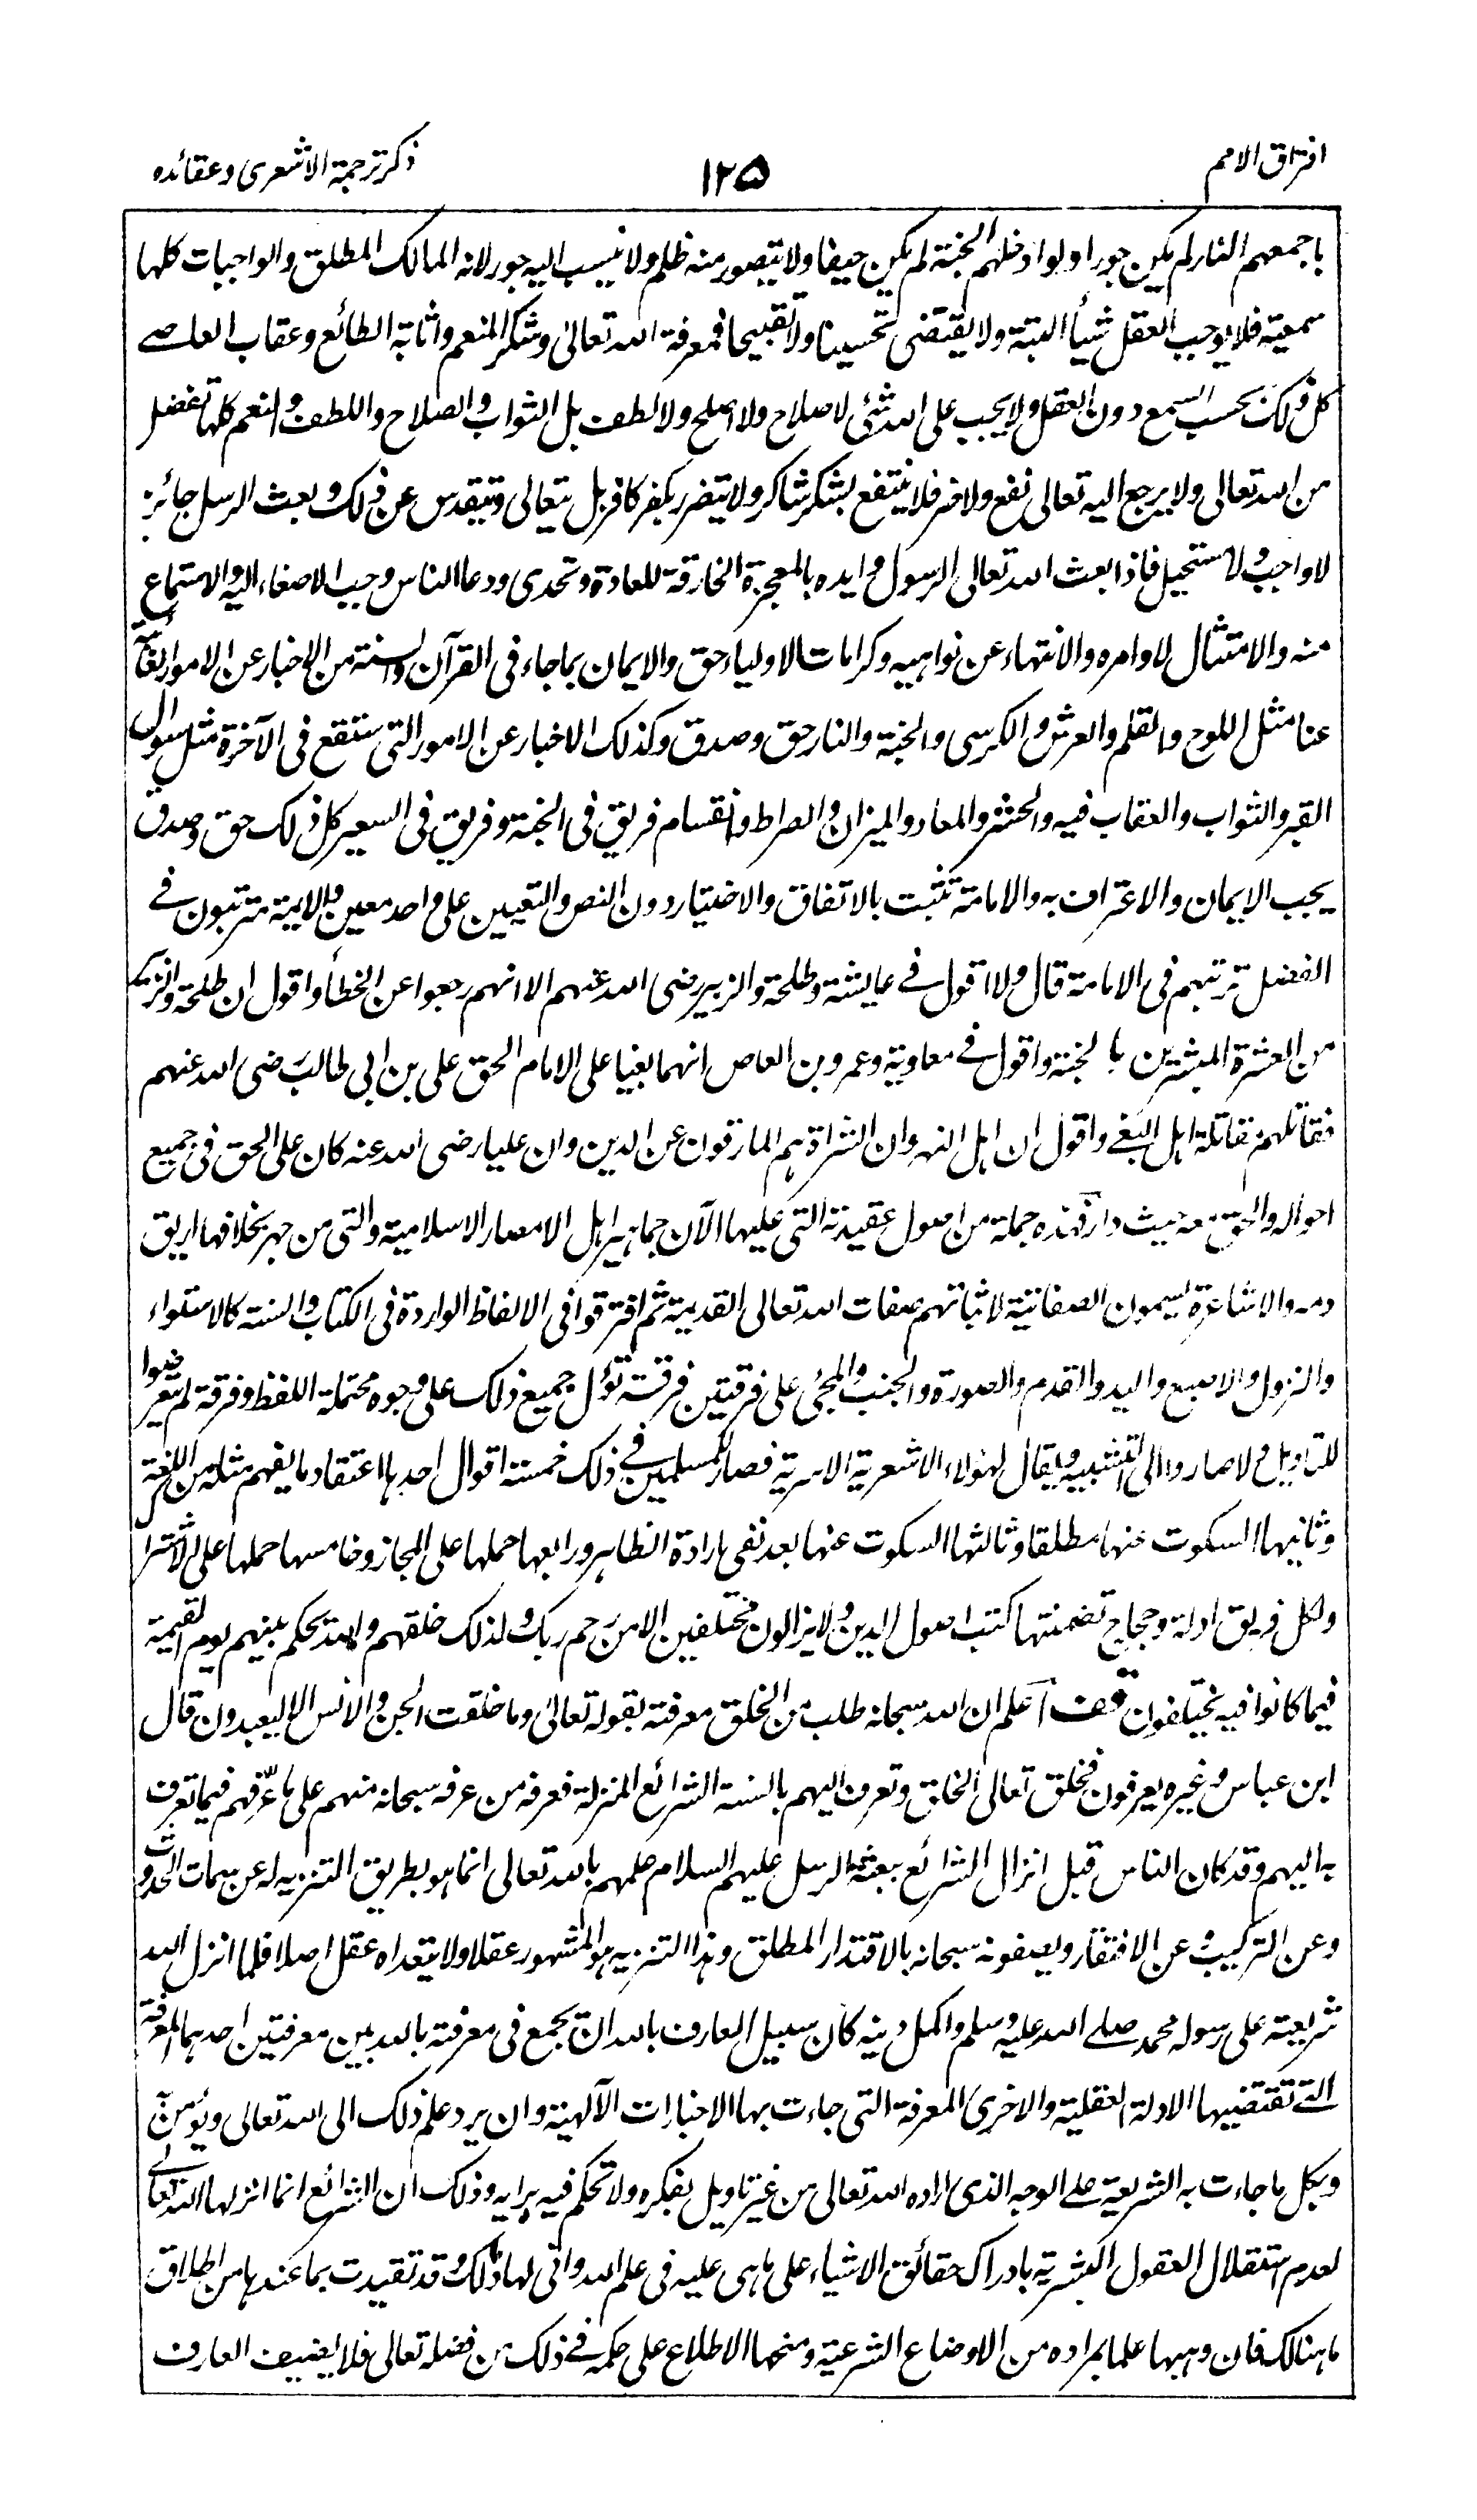 افتراق الامم
١٢٥
ذكر ترجمة الاشعرى وعقائده
باجمعهم النار لم يكن جورا ولو ادخلهم الجنة لم يكن حيفا ولا يتصور منه ظلم ولا ينسب اليه جور لانه المالك المطلق والواجبات كلها
سمعية فلا يوجب العقل شيأ البتة ولا يقتضى تحسينا ولا تقبيحا فمعرفة الله تعالى وشكر المنعم واثابة الطائع وعقاب العاصے
كل ذلك بحسب السمع دون العقل ولا يجب على الله شئ لا صلاح ولا اصلح ولا لطف بل الثواب والصلاح واللطف والنعم كلها تفضل
من الله تعالى ولا يرجع اليه تعالى نفع ولا ضر فلا ينتفع بشكر شاكر ولا يتضرر بكفر كافر بل يتعالى ويتقدس عن ذلك وبعث الرسل جائز
لا واجب ولا مستحيل فاذا بعث الله تعالى الرسول وايده بالمعجزة الخارقة للعادة وتحدى ودعا الناس وجب الاصغاء اليه والاستماع
منه والامتثال لاوامره والانتهاء عن نواهيه وكرامات الاولياء حق والايمان بما جاء فى القرآن والسنة من الاخبار عن الامور الغائبة
عنا مثل اللوح والقلم والعرش والكرسى والجنة والنار حق وصدق وكذلك الاخبار عن الامور التى ستقع فى الآخرة مثل سوال
القبر والثواب والعقاب فيه والحشر والمعاد والميزان والصراط وانقسام فريق فى الجنة وفريق فى السعير كل ذلك حق وصدق
يجب الايمان والاعتراف به والامامة تثبت بالاتفاق والاختيار دون النص والتعيين على واحد معين والايمة مترتبون فے
الفضل ترتبهم فى الامامة قال ولا اقول فے عايشة وطلحة والزبير رضى الله عنهم الا انهم رجعوا عن الخطأ واقول ان طلحة والزبير
من العشرة المبشرين بالجنة واقول فے معاوية وعمرو بن العاص انهما بغيا على الامام الحق على بن ابى طالب رضى الله عنهم
فقاتلهم مقاتلة اهل البغے واقول ان اهل النهروان الشراة هم المارقون عن الدين وان عليا رضى الله عنه كان على الحق فى جميع
احواله والحق معه حيث دار فهذه جملة من اصول عقيدته التى عليها الآن جماهير اهل الامصار الاسلامية والتى من جهر بخلافها اريق
دمه والاشاعرة يسمون الصفاتية لاثباتهم صفات الله تعالى القديمة ثم افترقوا فى الالفاظ الواردة فى الكتاب والسنة كالاستواء
والنزول والاصبع واليد والقدم والصورة والجنب والمجئ على فرقتين فرقة تؤل جميع ذلك على وجوه محتملة اللفظ وفرقة لم يتعرضوا
للتاويل ولا صاروا الى التشبيه ويقال لهؤلاء الاشعرية الاسرية فصار للمسلمين فے ذلك خمسة اقوال احدها اعتقاد ما يفهم مثله من اللغة
وثانيها السكوت عنها مطلقا وثالثها السكوت عنها بعد نفى ارادة الظاهر ورابعها حملها على المجاز وخامسها حملها على الاشتراك
ولكل فريق ادلة وحجاج تضمنتها كتب اصول الدين ولا يزالون مختلفين الا من رحم ربك ولذلك خلقهم والله يحكم بينهم يوم القيمة
فيما كانوا فيه يختلفون قف اعلم ان الله سبحانه طلب من الخلق معرفته بقوله تعالى وما خلقت الجن والانس الا ليعبدون قال
ابن عباس وغيره يعرفون فخلق تعالى الخلق وتعرف اليهم بالسنة الشرائع المنزلة فعرفه من عرفه سبحانه منهم على ما عرّفهم فيما تعرف
به اليهم وقد كان الناس قبل انزال الشرائع ببعثة الرسل عليهم السلام علمهم بالله تعالى انما هو بطريق التنزيه له عن سمات الحدوث
وعن التركيب وعن الافتقار ويصفونه سبحانه بالاقتدار المطلق وهذا التنزيه هو المشهور عقلا ولا يتعداه عقل اصلا فلما انزل الله
شريعته على رسوله محمد صلے الله عليه وسلم واكمل دينه كان سبيل العارف بالله ان يجمع فى معرفته بالله بين معرفتين احدهما المعرفة
التے تقتضيها الادلة العقلية والاخرى المعرفة التى جاءت بها الاخبارات الآلهية وان يرد علم ذلك الى الله تعالى ويؤمن به
وبكل ما جاءت به الشريعة علے الوجه الذى اراده الله تعالى من غير تاويل بفكره ولا تحكم فيه برايه وذلك ان الشرائع انما انزلها الله تعالے
لعدم استقلال العقول البشرية بادراك حقائق الاشياء على ما هى عليه فى علم الله وانى لها ذلك وقد تقيدت بما عندها من اطلاق
ما هنالك فان وهبها علما بمراده من الاوضاع الشرعية ومنحها الاطلاع على حكمه فے ذلك من فضله تعالى فلا يضيف العارف